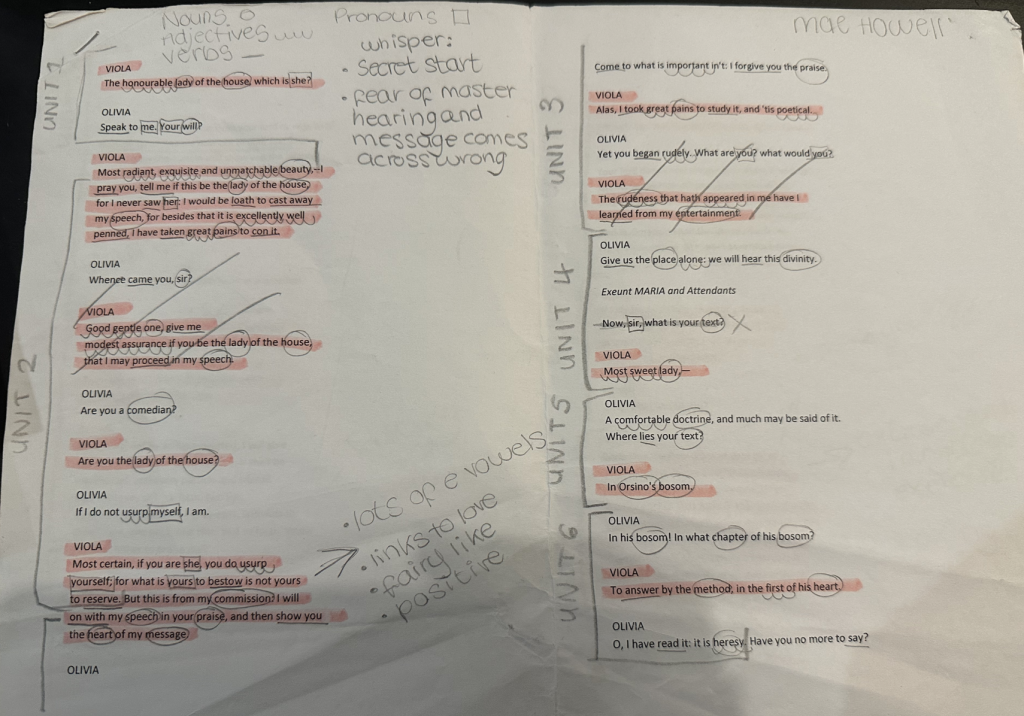 Nouns O
Adjectives
verbs —
Pronouns □
whisper:
• secret start
• fear of master
hearing and
message comes
across wrong
UNIT 1
VIOLA
The honourable lady of the house, which is she?
OLIVIA
Speak to me. Your will?
UNIT 2
VIOLA
Most radiant, exquisite and unmatchable beauty,—I
pray you, tell me if this be the lady of the house,
for I never saw her: I would be loath to cast away
my speech, for besides that it is excellently well
penned, I have taken great pains to con it.
OLIVIA
Whence came you, sir?
VIOLA
Good gentle one, give me
modest assurance if you be the lady of the house,
that I may proceed in my speech.
OLIVIA
Are you a comedian?
VIOLA
Are you the lady of the house?
OLIVIA
If I do not usurp myself, I am.
VIOLA
Most certain, if you are she, you do usurp
yourself; for what is yours to bestow is not yours
to reserve. But this is from my commission: I will
on with my speech in your praise, and then show you
the heart of my message.
OLIVIA
• lots of e vowels
• links to love
• fairy like
• positive
Mae Howell
Come to what is important in't: I forgive you the praise.
UNIT 3
VIOLA
Alas, I took great pains to study it, and 'tis poetical.
OLIVIA
Yet you began rudely. What are you? what would you?
VIOLA
The rudeness that hath appeared in me have I
learned from my entertainment.
UNIT 4
OLIVIA
Give us the place alone: we will hear this divinity.
Exeunt MARIA and Attendants
Now, sir, what is your text? X
VIOLA
Most sweet lady,—
UNIT 5
OLIVIA
A comfortable doctrine, and much may be said of it.
Where lies your text?
VIOLA
In Orsino's bosom.
UNIT 6
OLIVIA
In his bosom! In what chapter of his bosom?
VIOLA
To answer by the method, in the first of his heart.
OLIVIA
O, I have read it: it is heresy. Have you no more to say?